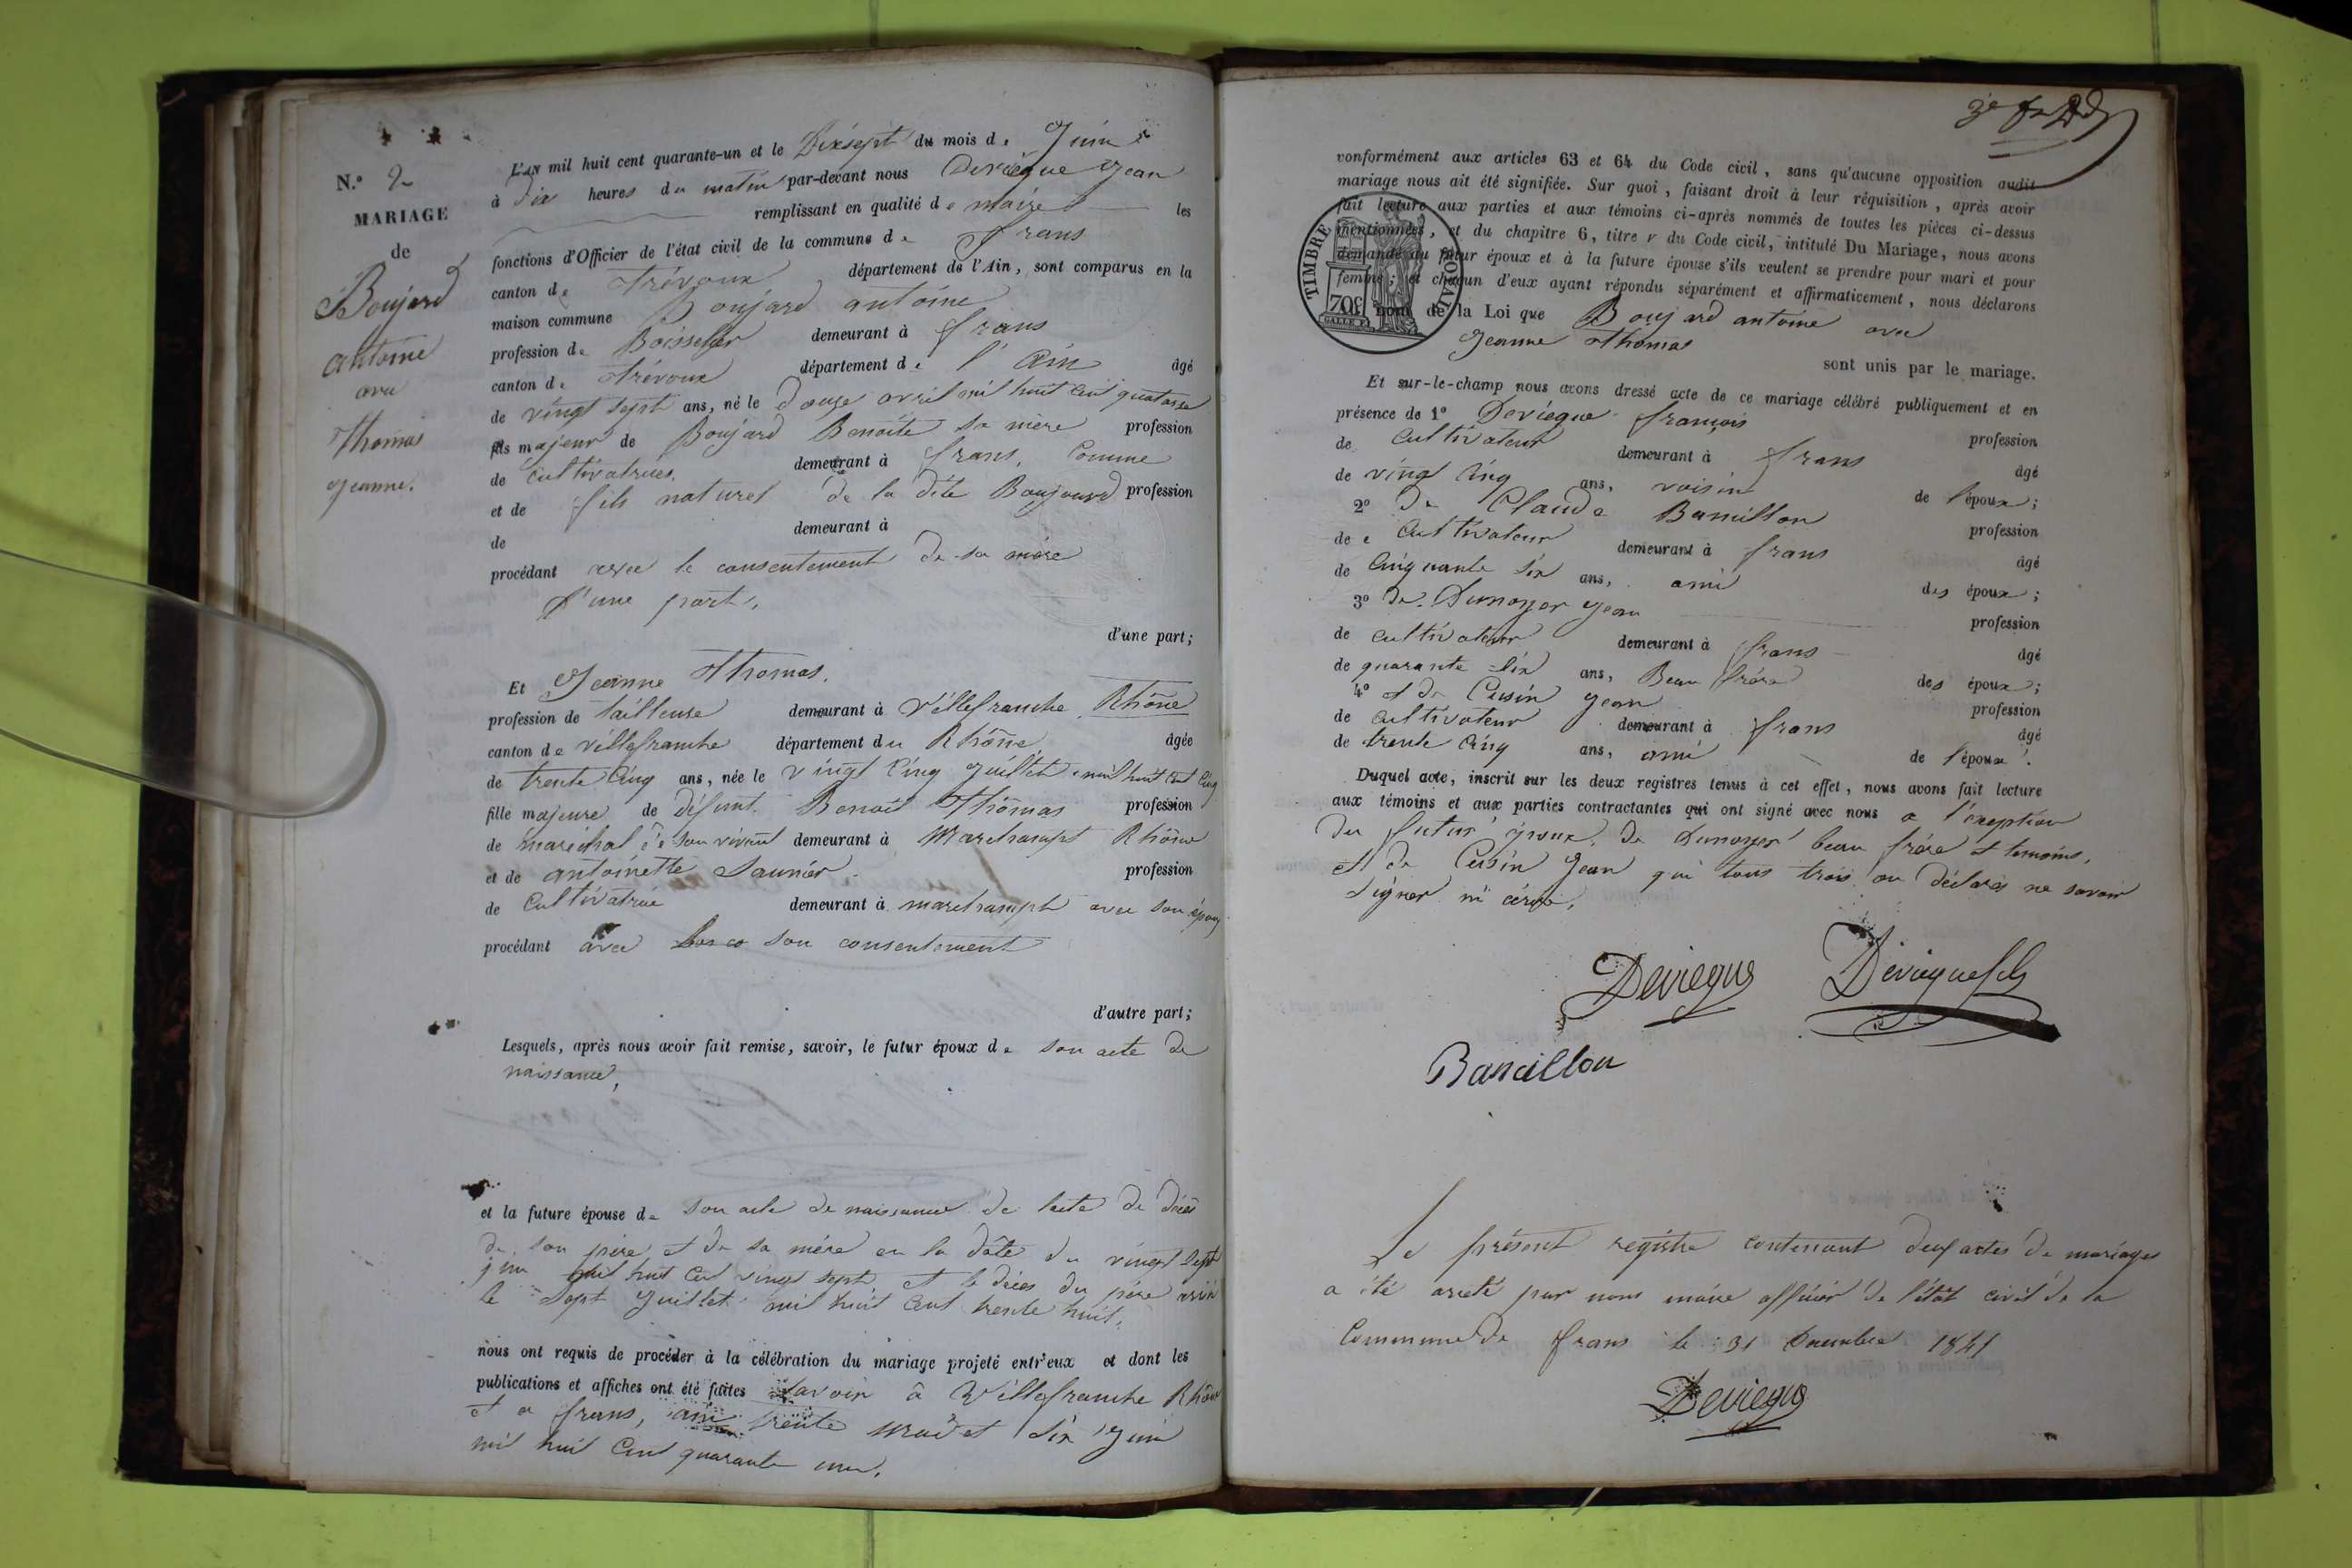 N.º 2
MARIAGE
de
Boujard
antoine
avec
Thomas
jeanne.
L'an mil huit cent quarante-un et le Dixsept du mois de Juin
à dix heures du matin par-devant nous Deviègue Jean
remplissant en qualité de maire les
fonctions d'Officier de l'état civil de la commune de frans
canton de trévoux département de l'Ain, sont comparus en la
maison commune Boujard antoine
profession de Boisselier demeurant à frans
canton de trévoux département de l'Ain âgé
de vingt sept ans, né le douze avril mil huit cent quatorze
fils majeur de Boujard Benoite sa mère profession
de cultivatrice. demeurant à frans, Comme
et de fils naturel de la dite Boujard profession
de demeurant à
procédant avec le consentement de sa mère
d'une part,
d'une part;
Et Jeanne Thomas.
profession de tailleuse demeurant à villefranche Rhône
canton de villefranche département du Rhône âgée
de trente Cinq ans, née le vingt Cinq Juillet mil huit cent Cinq
fille majeure de Défunt Benoit Thomas profession
de maréchal de son vivant demeurant à Marchampt Rhône
et de antoinette Saunier profession
de Cultivatrice demeurant à marchampt avec son époux
procédant avec son consentement
d'autre part;
Lesquels, après nous avoir fait remise, savoir, le futur époux de son acte de
naissance,
et la future épouse de son acte de naissance de l'acte de décès
de son père et de sa mère en la date du vingt sept
juin mil huit cent vingt sept et le décès du père
le sept Juillet mil huit cent trente huit.
nous ont requis de procéder à la célébration du mariage projeté entr'eux et dont les
publications et affiches ont été faites savoir à Villefranche Rhône
et a frans, ain trente Mai et Six Juin
mil huit Cent quarante un.
conformément aux articles 63 et 64 du Code civil, sans qu'aucune opposition audit
mariage nous ait été signifiée. Sur quoi, faisant droit à leur réquisition, après avoir
fait lecture aux parties et aux témoins ci-après nommés de toutes les pièces ci-dessus
mentionnées, et du chapitre 6, titre v du Code civil, intitulé Du Mariage, nous avons
demandé au futur époux et à la future épouse s'ils veulent se prendre pour mari et pour
femme; et chacun d'eux ayant répondu séparément et affirmativement, nous déclarons
nom de la Loi que Boujard antoine avec
Jeanne Thomas
sont unis par le mariage.
TIMBRE ROYAL
70c
Et sur-le-champ nous avons dressé acte de ce mariage célébré publiquement et en
présence de 1º Deviegue françois
profession
de Cultivateur demeurant à frans
âgé
de vingt Cinq ans, voisin de l'époux;
2º De Claude Bansillon
profession
de Cultivateur demeurant à frans
âgé
de Cinquante six ans, ami des époux;
3º De Dumoyer Jean
profession
de cultivateur demeurant à frans
âgé
de quarante six ans, Beau frère des époux;
4º et de Cusin Jean
profession
de cultivateur demeurant à frans
âgé
de trente Cinq ans, ami de l'époux.
Duquel acte, inscrit sur les deux registres tenus à cet effet, nous avons fait lecture
aux témoins et aux parties contractantes qui ont signé avec nous a l'exeption
du futur époux, de Dumoyer beau frère et temoins,
et de Cusin Jean qui tous trois on déclarés ne savoir
signer ni
Deviegue Deviegue fils
Bansillon
Le présent registre contenant deux actes de mariages
a été arreté par nous maire officier de l'état civil de la
Commune de frans le 31 Decembre 1841
Deviegue